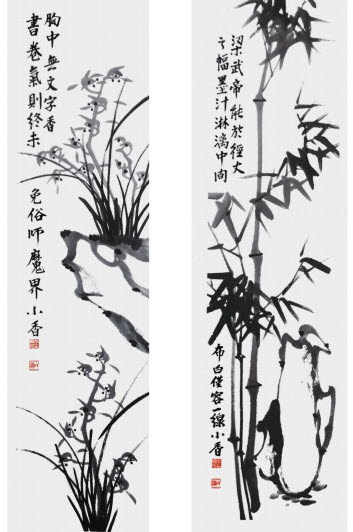 胸中無文字香
書卷氣則終未
免俗師魔界小香
梁武帝能於徑丈
之幅墨汁淋漓中向
布白僅容一線小香